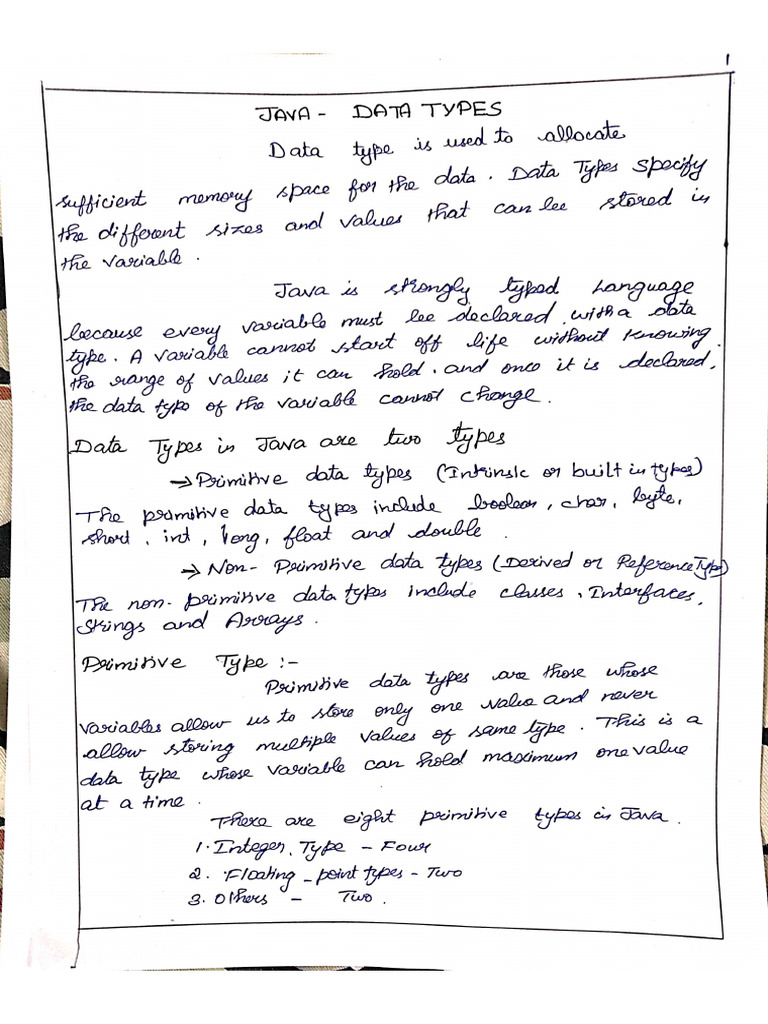 1
JAVA - DATA TYPES
Data type is used to allocate
sufficient memory space for the data. Data Types specify
the different sizes and values that can be stored in
the variable.
Java is strongly typed Language
because every variable must be declared with a data
type. A variable cannot start off life without knowing
the range of values it can hold. and once it is declared,
the data type of the variable cannot change.
Data Types in Java are two types
→ Primitive data types (Intrinsic or built in types)
The primitive data types include boolean, char, byte,
short, int, long, float and double.
→ Non-Primitive data types (Derived or Reference Type)
The non-primitive data types include classes, Interfaces,
Strings and Arrays.
Primitive Type :-
Primitive data types are those whose
variables allow us to store only one value and never
allow storing multiple values of same type. This is a
data type whose variable can hold maximum one value
at a time.
There are eight primitive types in Java.
1. Integer Type - Four
2. Floating - point types - Two
3. Others - Two.